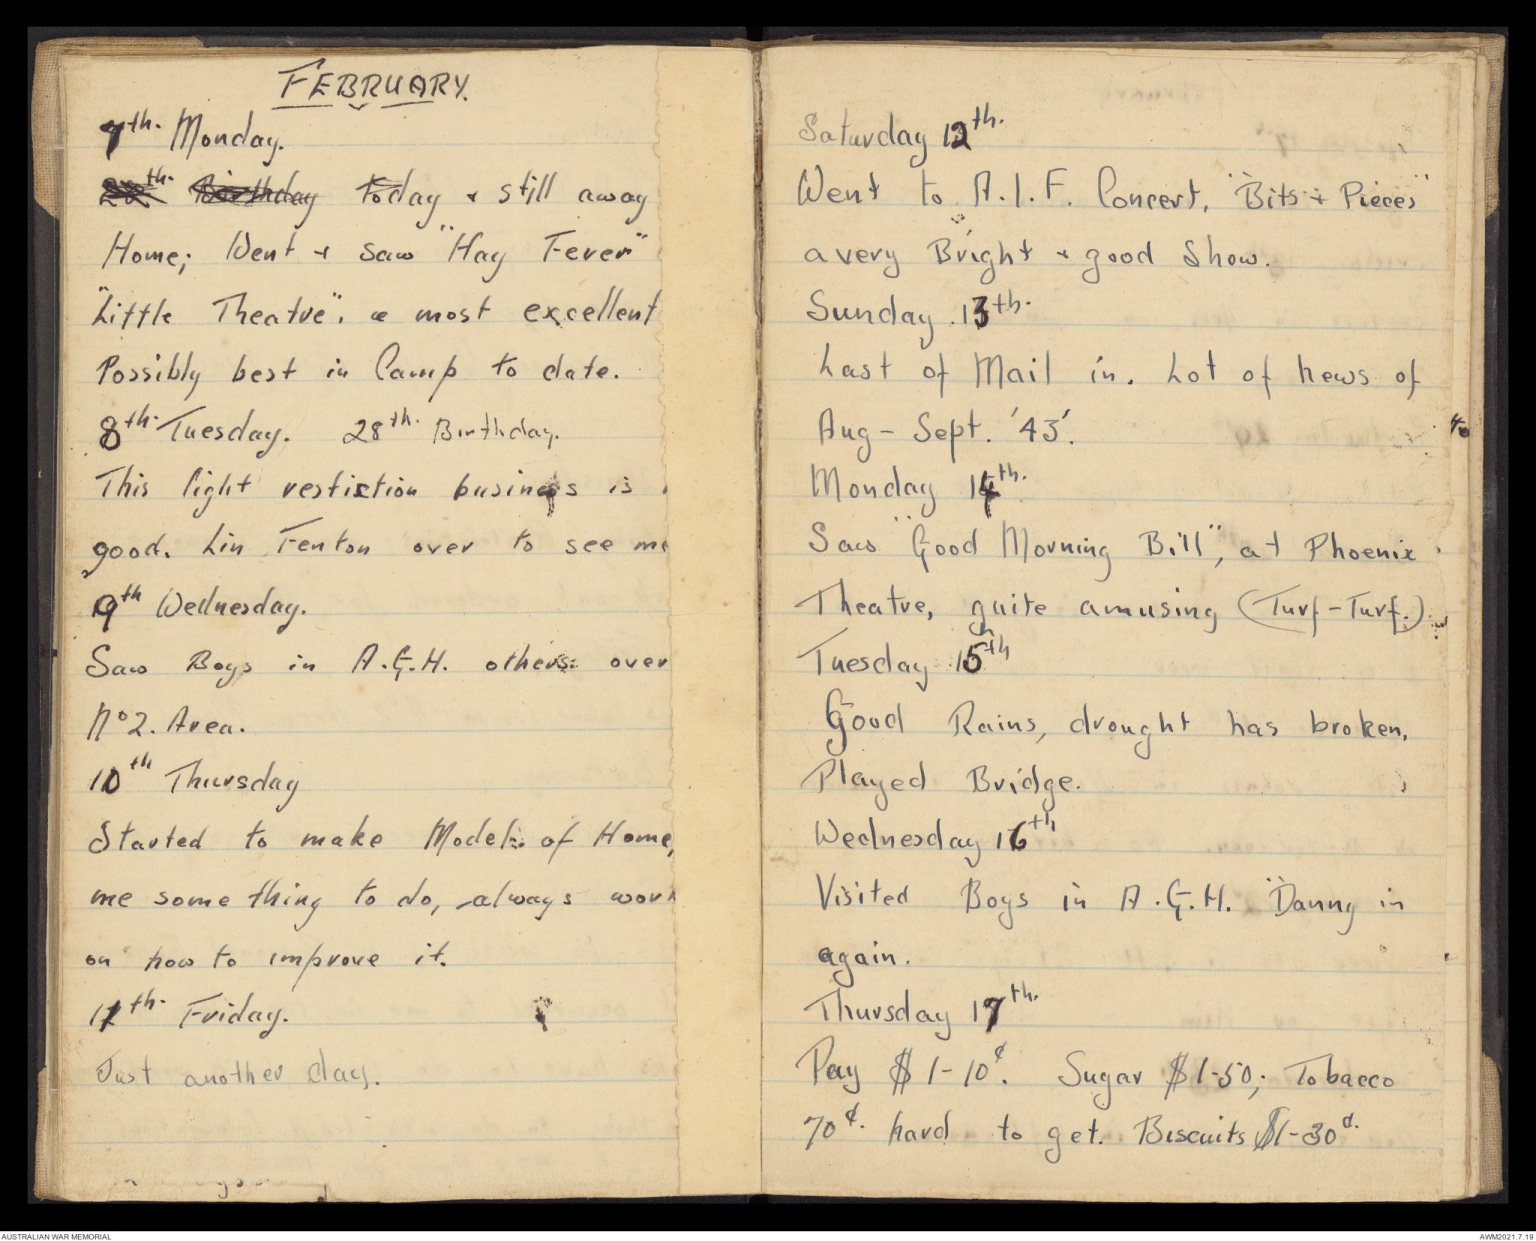 FEBRUARY.
7th. Monday.
28th. Birthday Today + still away
Home; Went + saw "Hay Fever"
"Little Theatre". a most excellent
Possibly best in Camp to date.
8th. Tuesday. 28th. Birthday.
This light restiction business is
good. Lin Fenton over to see me
9th Wednesday.
Saw Boys in A.G.H. others over
No 2. Area.
10th Thursday
Started to make Model of Home,
me some thing to do, always work
on how to improve it.
11th. Friday.
Just another day.
Saturday 12th.
Went to A.I.F. Concert, "Bits + Pieces"
a very Bright + good Show.
Sunday 13th.
Last of Mail in. Lot of news of
Aug - Sept. '43'.
Monday 14th.
Saw "Good Morning Bill", at Phoenix
Theatre, quite amusing (Turf-Turf.)
Tuesday 15th
Good Rains, drought has broken,
Played Bridge.
Wednesday 16th
Visited Boys in A.G.H. "Danny in
again.
Thursday 17th.
Pay $1-10¢. Sugar $1-50; Tobacco
70¢. hard to get. Biscuits $1-30¢.
AUSTRALIAN WAR MEMORIAL
AWM2021.7.19